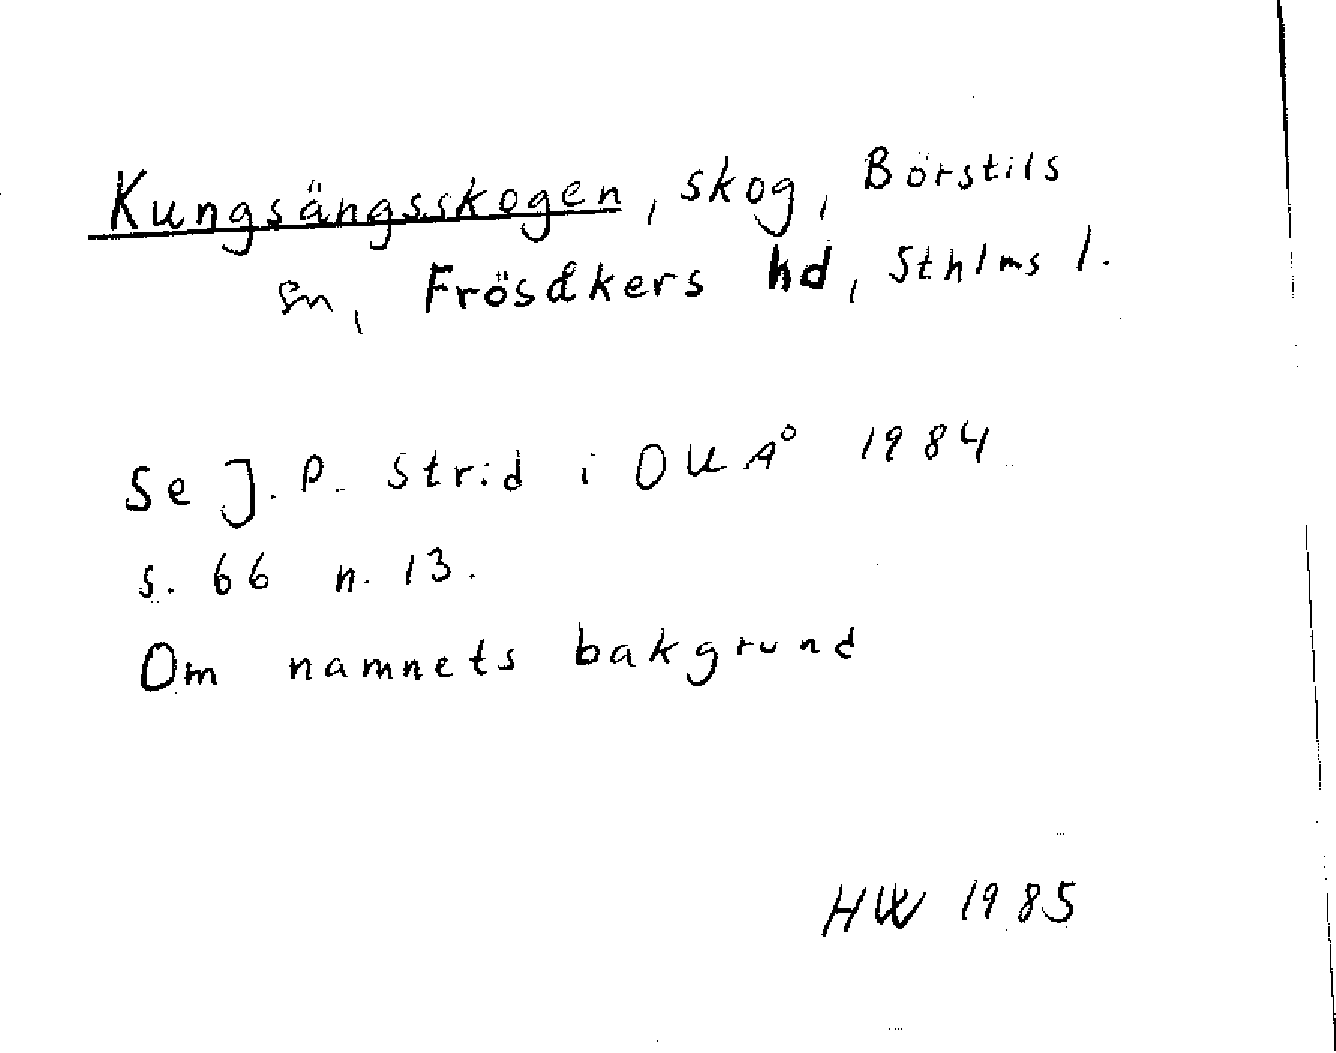 Kungsängsskogen, skog, Börstils
sn, Frösåkers hd, Sthlms l.
Se J. P. Strid i OUÅ 1984
s. 66 n. 13.
Om namnets bakgrund
HW 1985